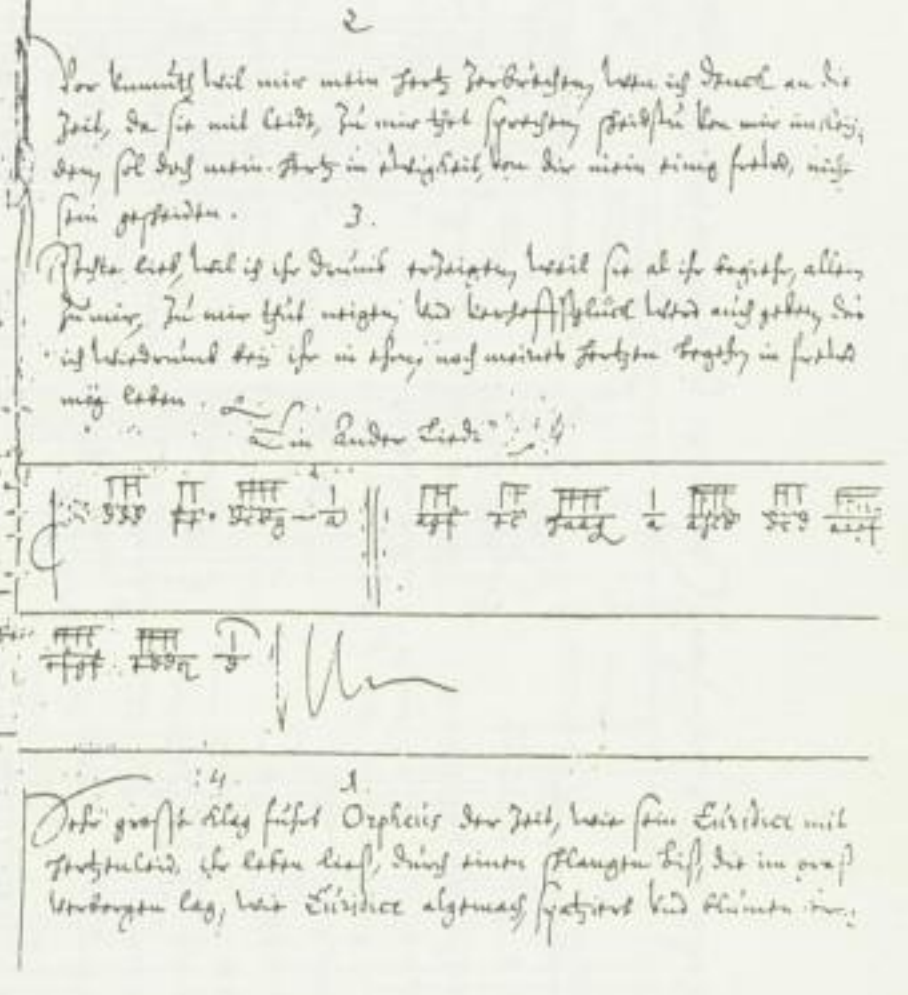 2
Vor Vnmuth wil mir mein Hertz Zerbrechen, wen ich denck an die
Zeit, da sie mit leidt, Zu mir thet sprechen, scheidstu von mir
den, sol doch mein Hertz in ewigkeit, von dir mein einig freud, nicht
sein gescheiden.
3.
lieb, wil ich ihr drumb erZeigen, weil sie all ihr begiehr, allein
Zu mir, Zu mir thut neigen, Vnd verhoff glück werd auch geben, das
ich wiedrumb bey ihr in ehrn, nach meines Hertzen begehrn in freud
mög leben.
Ein Ander Liedt 4
4. 1.
Sehr grosse klag führt Orpheus der Zeit, wie sein Euridice mit
Hertzenleid, ihr leben ließ, durch einen schlangen biß, die im graß
verborgen lag, wie Euridice algemach, spatziert vnd blumen